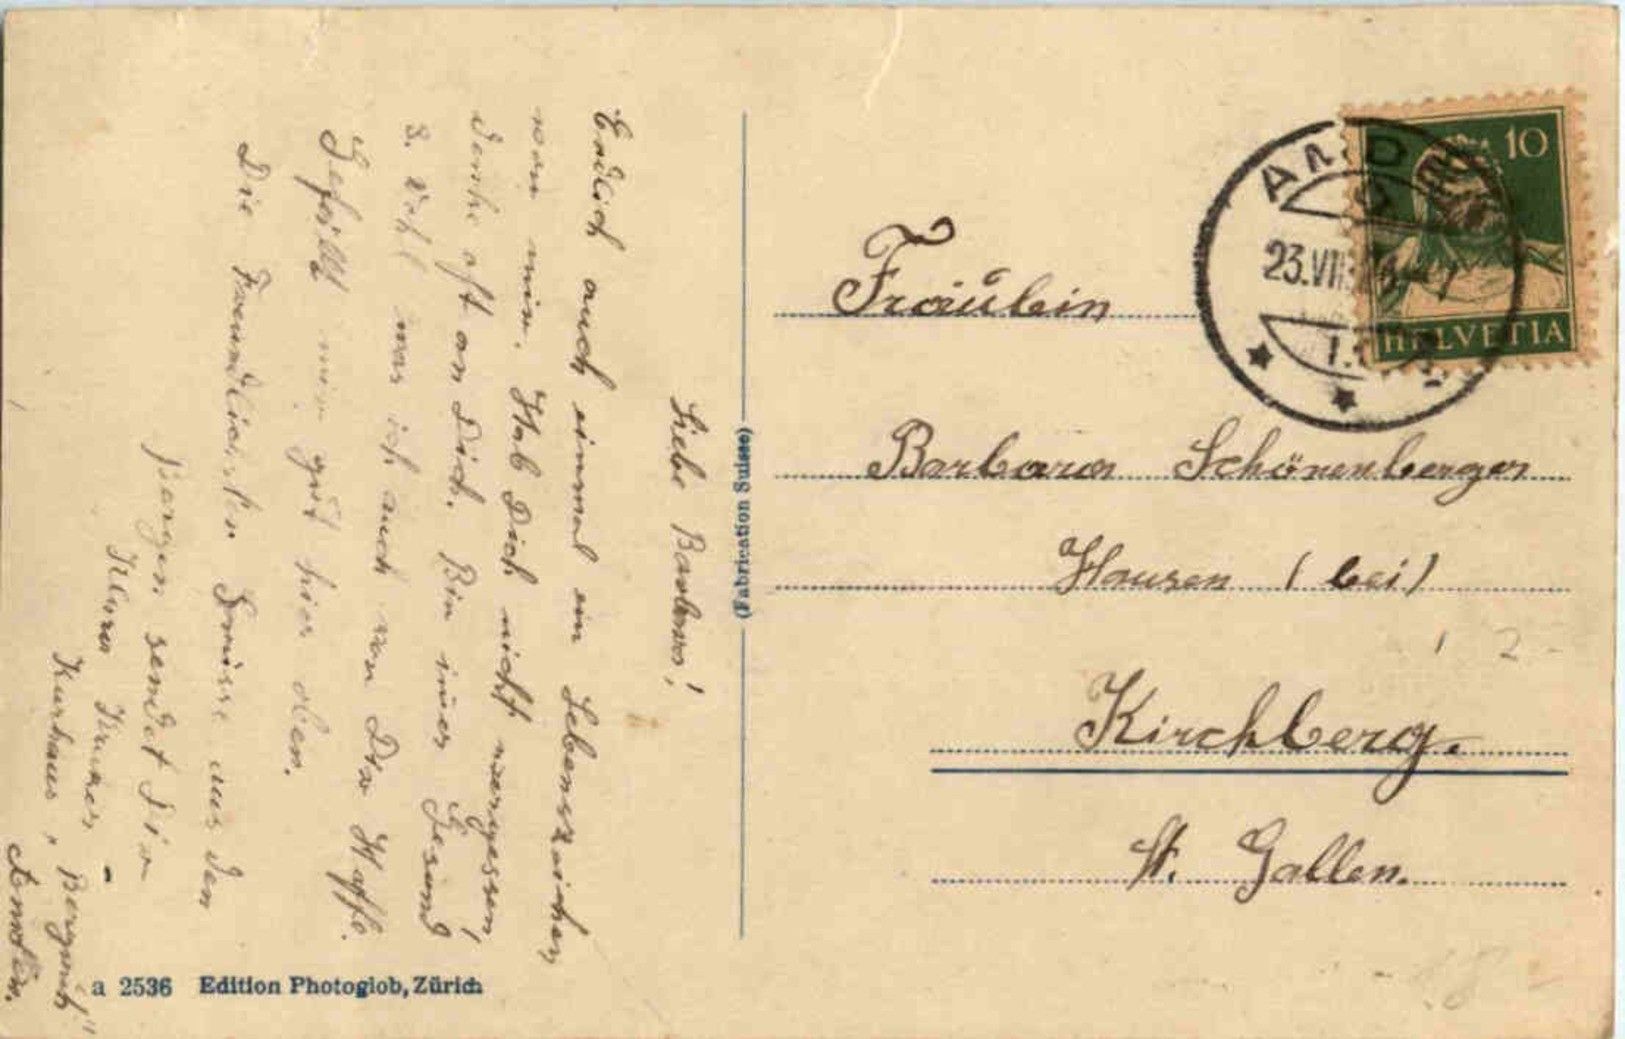 Liebe Barbara!
Endlich auch einmal ein Lebenszeichen
von mir. Hab Dich nicht vergessen!
Denke oft an Dich. Bin imer Gesund
& Wohl was ich auch von Dir Hoffe.
Gefällt mir gut hier oben.
Die Freundlichsten Grüsse aus den
Bergen sendet Dir
Klara
Kurhaus "Bergruh"
Amden.
(Fabrication Suisse)
a 2536 Edition Photoglob, Zürich
10
HELVETIA
AMDEN
23.VII.
Fräulein
Barbara Schönenberger
Hausen (bei)
Kirchberg.
St. Gallen.